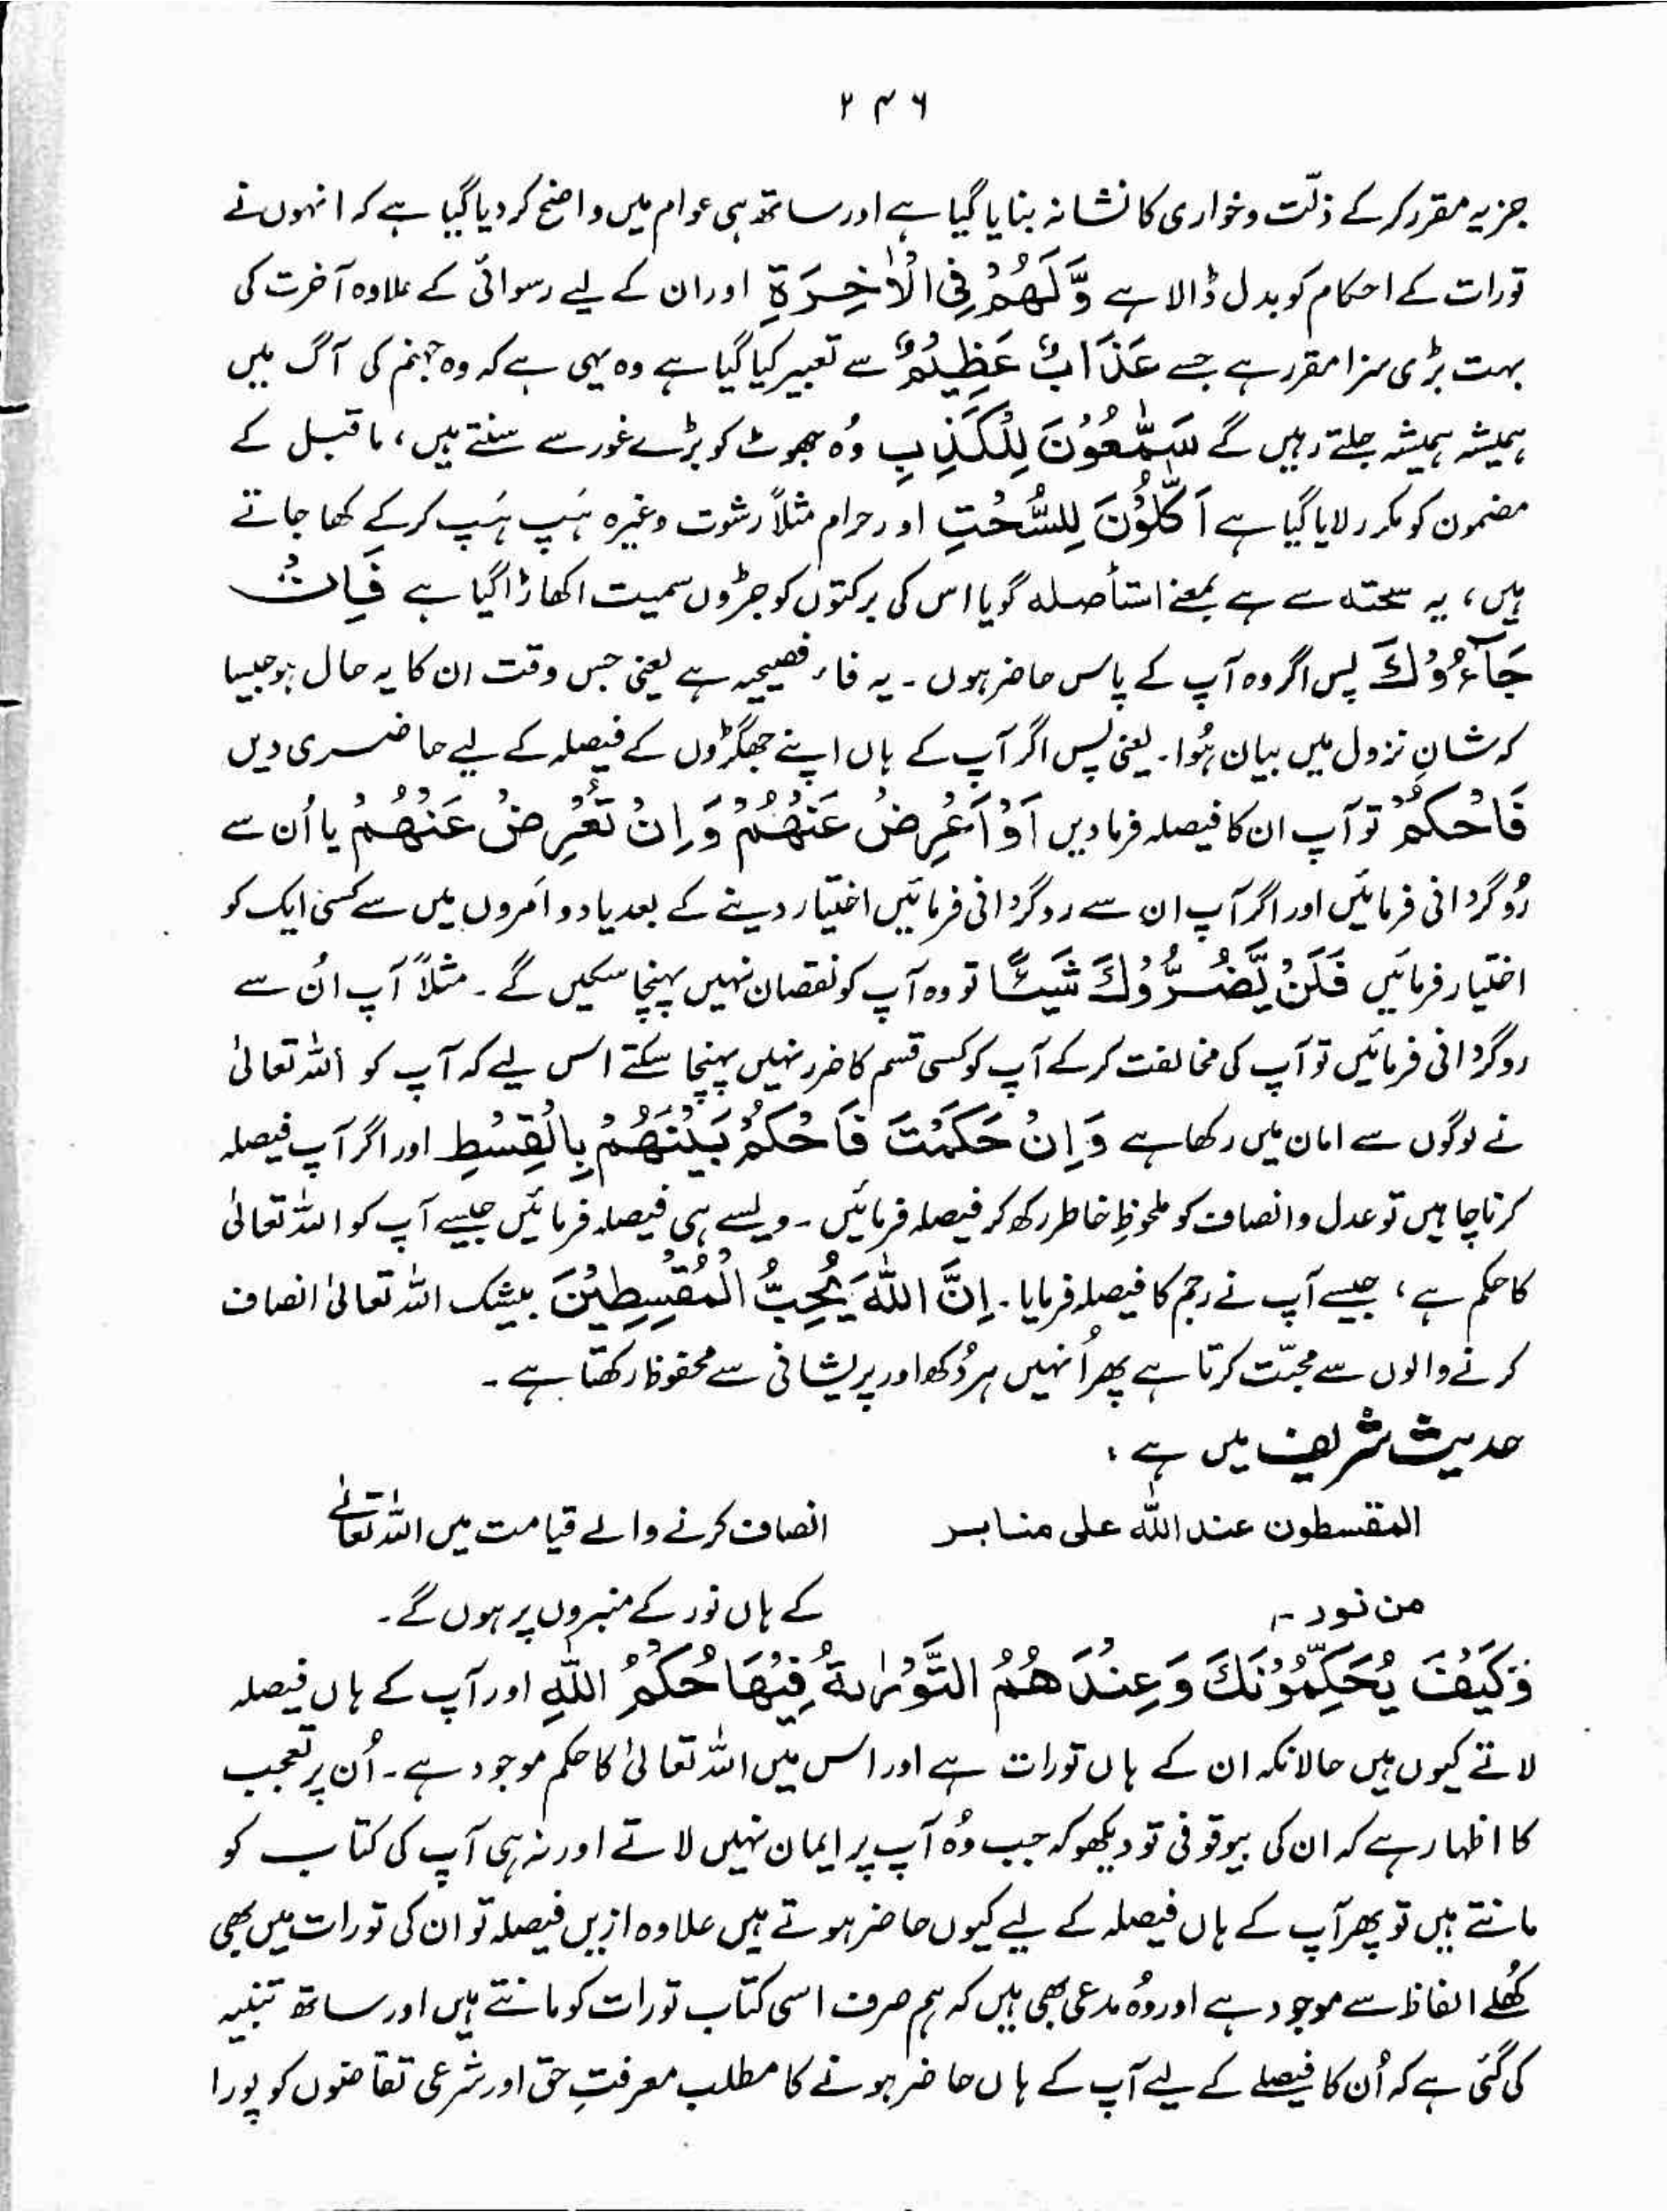 ۲۴۶
جزیہ مقرر کرکے ذلّت وخواری کا نشانہ بنایا گیا ہے اور ساتھ ہی عوام میں واضح کردیا گیا ہے کہ انہوں نے
تورات کے احکام کو بدل ڈالا ہے وَّلَهُمْ فِی الْاٰخِرَةِ اور ان کے لیے رسوائی کے علاوہ آخرت کی
بہت بڑی سزا مقرر ہے جسے عَذَابٌ عَظِیْمٌ سے تعبیر کیا گیا ہے وہ یہی ہے کہ وہ جہنم کی آگ میں
ہمیشہ ہمیشہ جلتے رہیں گے سَمّٰعُوْنَ لِلْكَذِبِ وُہ جھوٹ کو بڑے غور سے سنتے ہیں، ماقبل کے
مضمون کو مکرر لایا گیا ہے اَكّٰلُوْنَ لِلسُّحْتِ اور حرام مثلاً رشوت وغیرہ ہَپ ہَپ کرکے کھا جاتے
ہیں، یہ سحتہ سے ہے بمعنے استأصلہ گویا اس کی برکتوں کو جڑوں سمیت اکھاڑا گیا ہے فَاِنْ
جَآءُوْكَ پس اگر وہ آپ کے پاس حاضر ہوں۔ یہ فاء فصیحیہ ہے یعنی جس وقت ان کا یہ حال ہو جیسا
کہ شانِ نزول میں بیان ہُوا۔ یعنی پس اگر آپ کے ہاں اپنے جھگڑوں کے فیصلہ کے لیے حاضری دیں
فَاحْكُمْ تو آپ ان کا فیصلہ فرمادیں اَوْ اَعْرِضْ عَنْهُمْ وَاِنْ تُعْرِضْ عَنْهُمْ یا اُن سے
رُوگردانی فرمائیں اور اگر آپ ان سے روگردانی فرمائیں اختیار دینے کے بعد یا دو اَمروں میں سے کسی ایک کو
اختیار فرمائیں فَلَنْ یَّضُرُّوْكَ شَیْـًٔا تو وہ آپ کو نقصان نہیں پہنچا سکیں گے۔ مثلاً آپ اُن سے
روگردانی فرمائیں تو آپ کی مخالفت کرکے آپ کو کسی قسم کا ضرر نہیں پہنچا سکتے اس لیے کہ آپ کو اللہ تعالیٰ
نے لوگوں سے امان میں رکھا ہے وَاِنْ حَكَمْتَ فَاحْكُمْ بَیْنَهُمْ بِالْقِسْطِ اور اگر آپ فیصلہ
کرنا چاہیں تو عدل وانصاف کو ملحوظِ خاطر رکھ کر فیصلہ فرمائیں۔ ویسے ہی فیصلہ فرمائیں جیسے آپ کو اللہ تعالیٰ
کا حکم ہے، جیسے آپ نے رجم کا فیصلہ فرمایا۔ اِنَّ اللّٰهَ یُحِبُّ الْمُقْسِطِیْنَ بیشک اللہ تعالیٰ انصاف
کرنے والوں سے محبّت کرتا ہے پھر اُنہیں ہر دُکھ اور پریشانی سے محفوظ رکھتا ہے۔
حدیث شریف میں ہے:
المقسطون عند اللّٰه علی منابر
انصاف کرنے والے قیامت میں اللہ تعالےٰ
من نور۔
کے ہاں نور کے منبروں پر ہوں گے۔
وَكَیْفَ یُحَكِّمُوْنَكَ وَعِنْدَهُمُ التَّوْرٰىةُ فِیْهَا حُكْمُ اللّٰهِ اور آپ کے ہاں فیصلہ
لاتے کیوں ہیں حالانکہ ان کے ہاں تورات ہے اور اس میں اللہ تعالیٰ کا حکم موجود ہے۔ اُن پر تعجب
کا اظہار ہے کہ ان کی بیوقوفی تو دیکھو کہ جب وُہ آپ پر ایمان نہیں لاتے اور نہ ہی آپ کی کتاب کو
مانتے ہیں تو پھر آپ کے ہاں فیصلہ کے لیے کیوں حاضر ہوتے ہیں علاوہ ازیں فیصلہ تو ان کی تورات میں بھی
کُھلے الفاظ سے موجود ہے اور وُہ مدعی بھی ہیں کہ ہم صرف اسی کتاب تورات کو مانتے ہیں اور ساتھ تنبیہ
کی گئی ہے کہ اُن کا فیصلے کے لیے آپ کے ہاں حاضر ہونے کا مطلب معرفتِ حق اور شرعی تقاضوں کو پورا